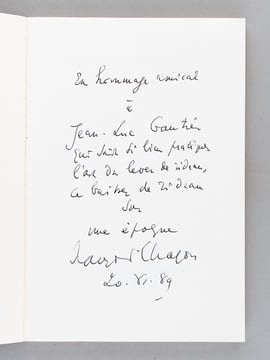 En hommage amical
à
Jean-Luc Gautier
qui sait si bien pratiquer
l'art du lever de rideau,
ce baisser de rideau
sur
une époque
20. VI. 89